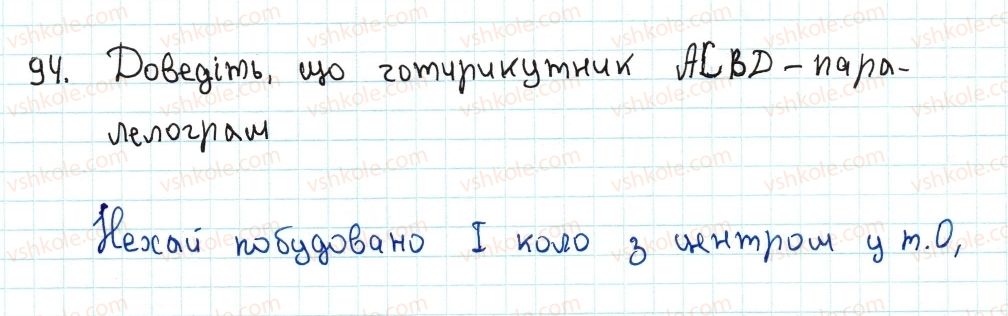 94. Доведіть, що чотирикутник ACBD - пара-
лелограм
Нехай побудовано I коло з центром у т.О,